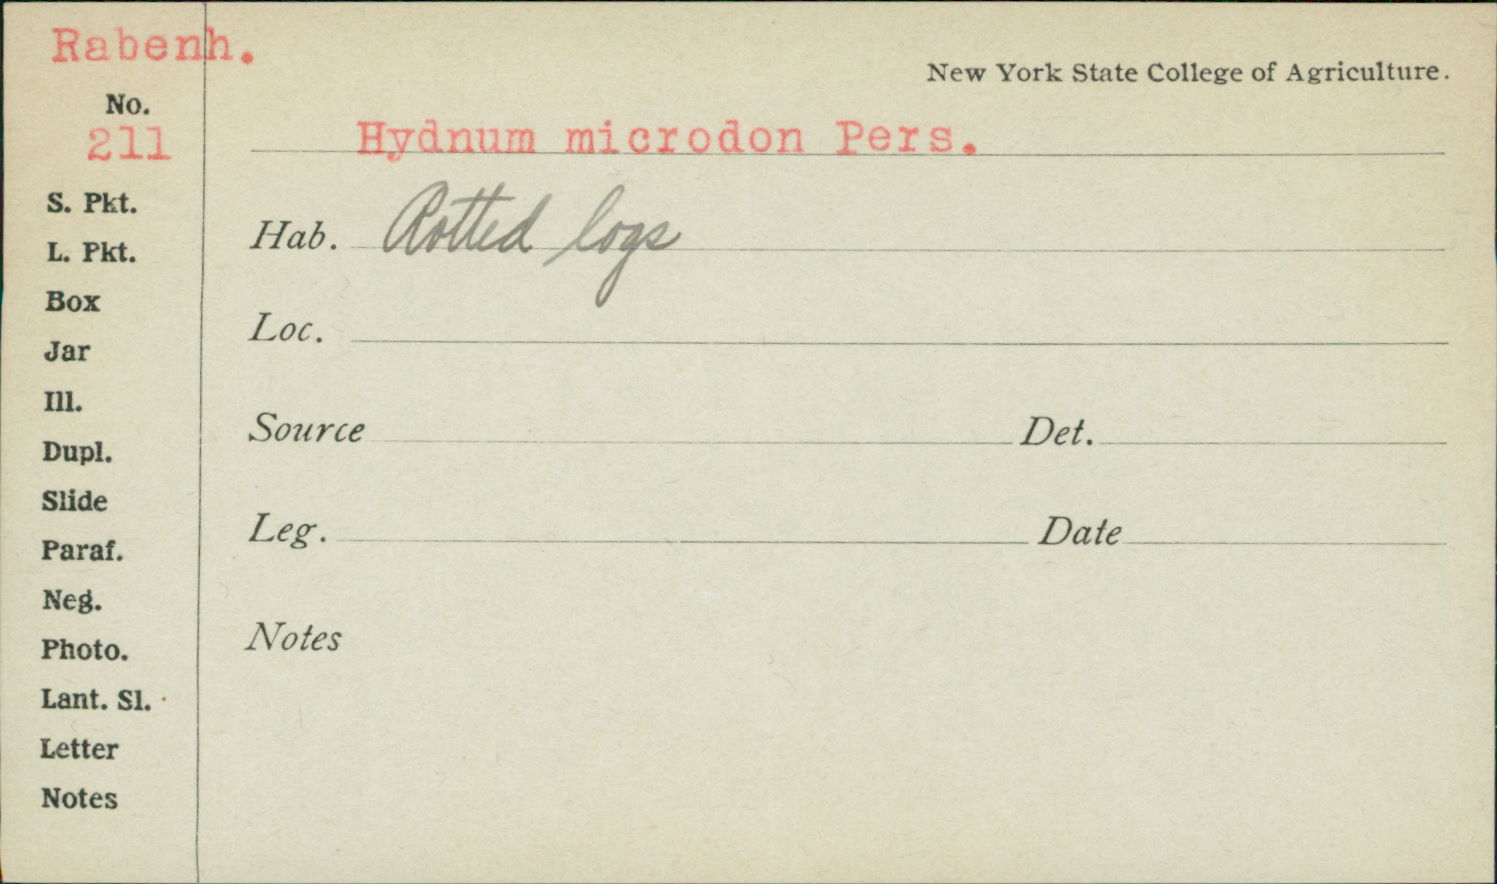 Rabenh.
New York State College of Agriculture.
No.
211
Hydnum microdon Pers.
S. Pkt.
L. Pkt.
Box
Jar
Ill.
Dupl.
Slide
Paraf.
Neg.
Photo.
Lant. Sl.
Letter
Notes
Hab. Rotted logs
Loc.
Source Det.
Leg. Date
Notes